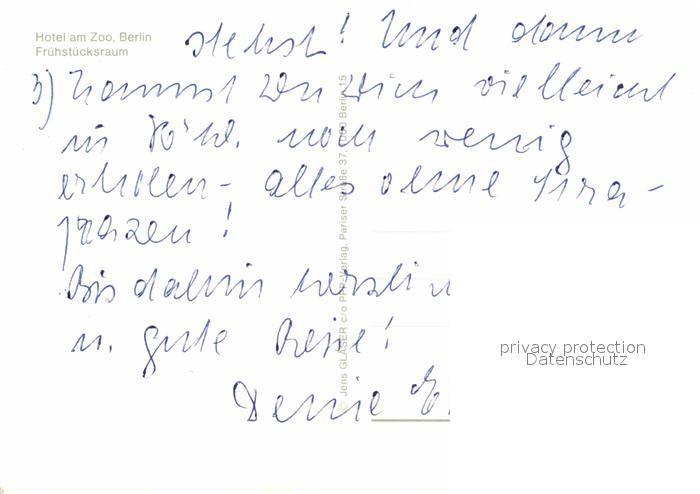 Hotel am Zoo, Berlin
Frühstücksraum
stehst! Und dann
3) kannst Du Dich vielleicht
in noch wenig
erholen - alles ohne Stra-
pazen!
Bis dahin herzlich
u. gute Reise!
Deine E.
© Jens GLÄSER c/o Verlag, Pariser Straße 37, 1000 Berlin 15
privacy protection
Datenschutz